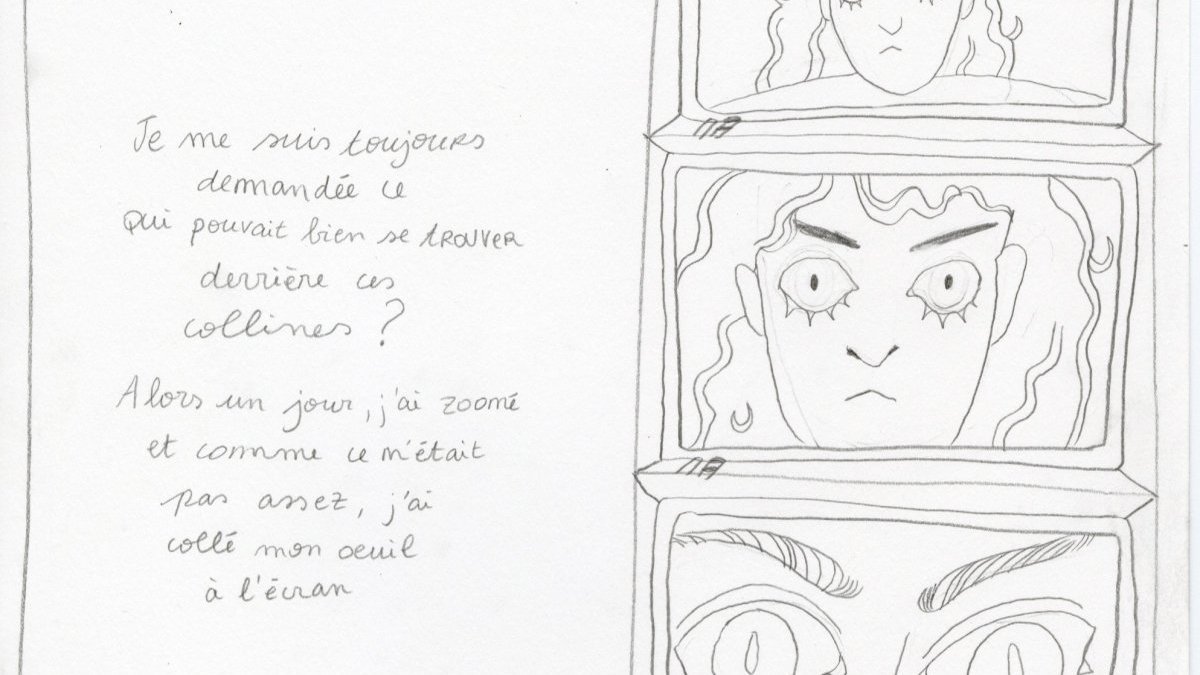 Je me suis toujours
demandée ce
qui pouvait bien se trouver
derrière ces
collines ?
Alors un jour, j'ai zoomé
et comme ce m'était
pas assez, j'ai
collé mon oeuil
à l'écran